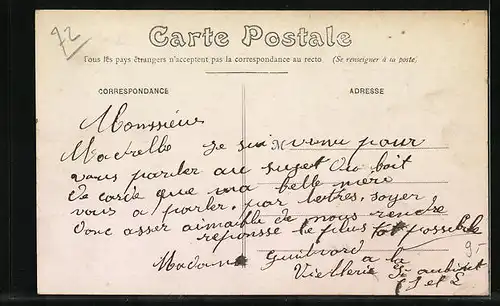 72
Carte Postale
Tous les pays étrangers n'acceptent pas la correspondance au recto. (Se renseigner à la poste)
CORRESPONDANCE
ADRESSE
Monssieur
je sui venu pour
vous parler au sujet du boit
de corde que ma belle mere
vous a parler, par lettres, soyer
donc asser aimable de nous rendre
reponsse le plus tot possible
Madame Guilvard a la
Viellerie St aubin
9-